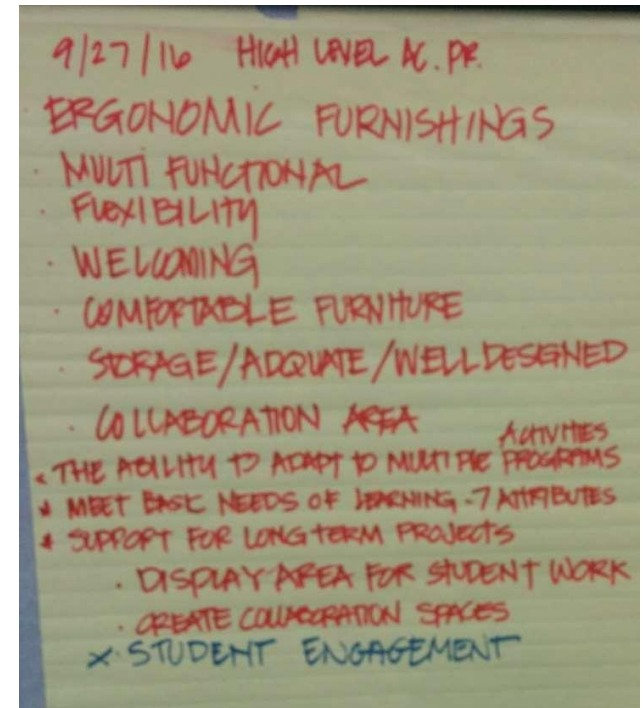 9/27/16 HIGH LEVEL AC. PR.
ERGONOMIC FURNISHINGS
· MULTI FUNCTIONAL
· FLEXIBILITY
· WELCOMING
· COMFORTABLE FURNITURE
· STORAGE/ADQUATE/WELL DESIGNED
· COLLABORATION AREA
ACTIVITES
* THE ABILITY TO ADAPT TO MULTIPLE PROGRAMS
* MEET BASIC NEEDS OF LEARNING - 7 ATTRIBUTES
* SUPPORT FOR LONG TERM PROJECTS
· DISPLAY AREA FOR STUDENT WORK
· CREATE COLLABORATION SPACES
x · STUDENT ENGAGEMENT